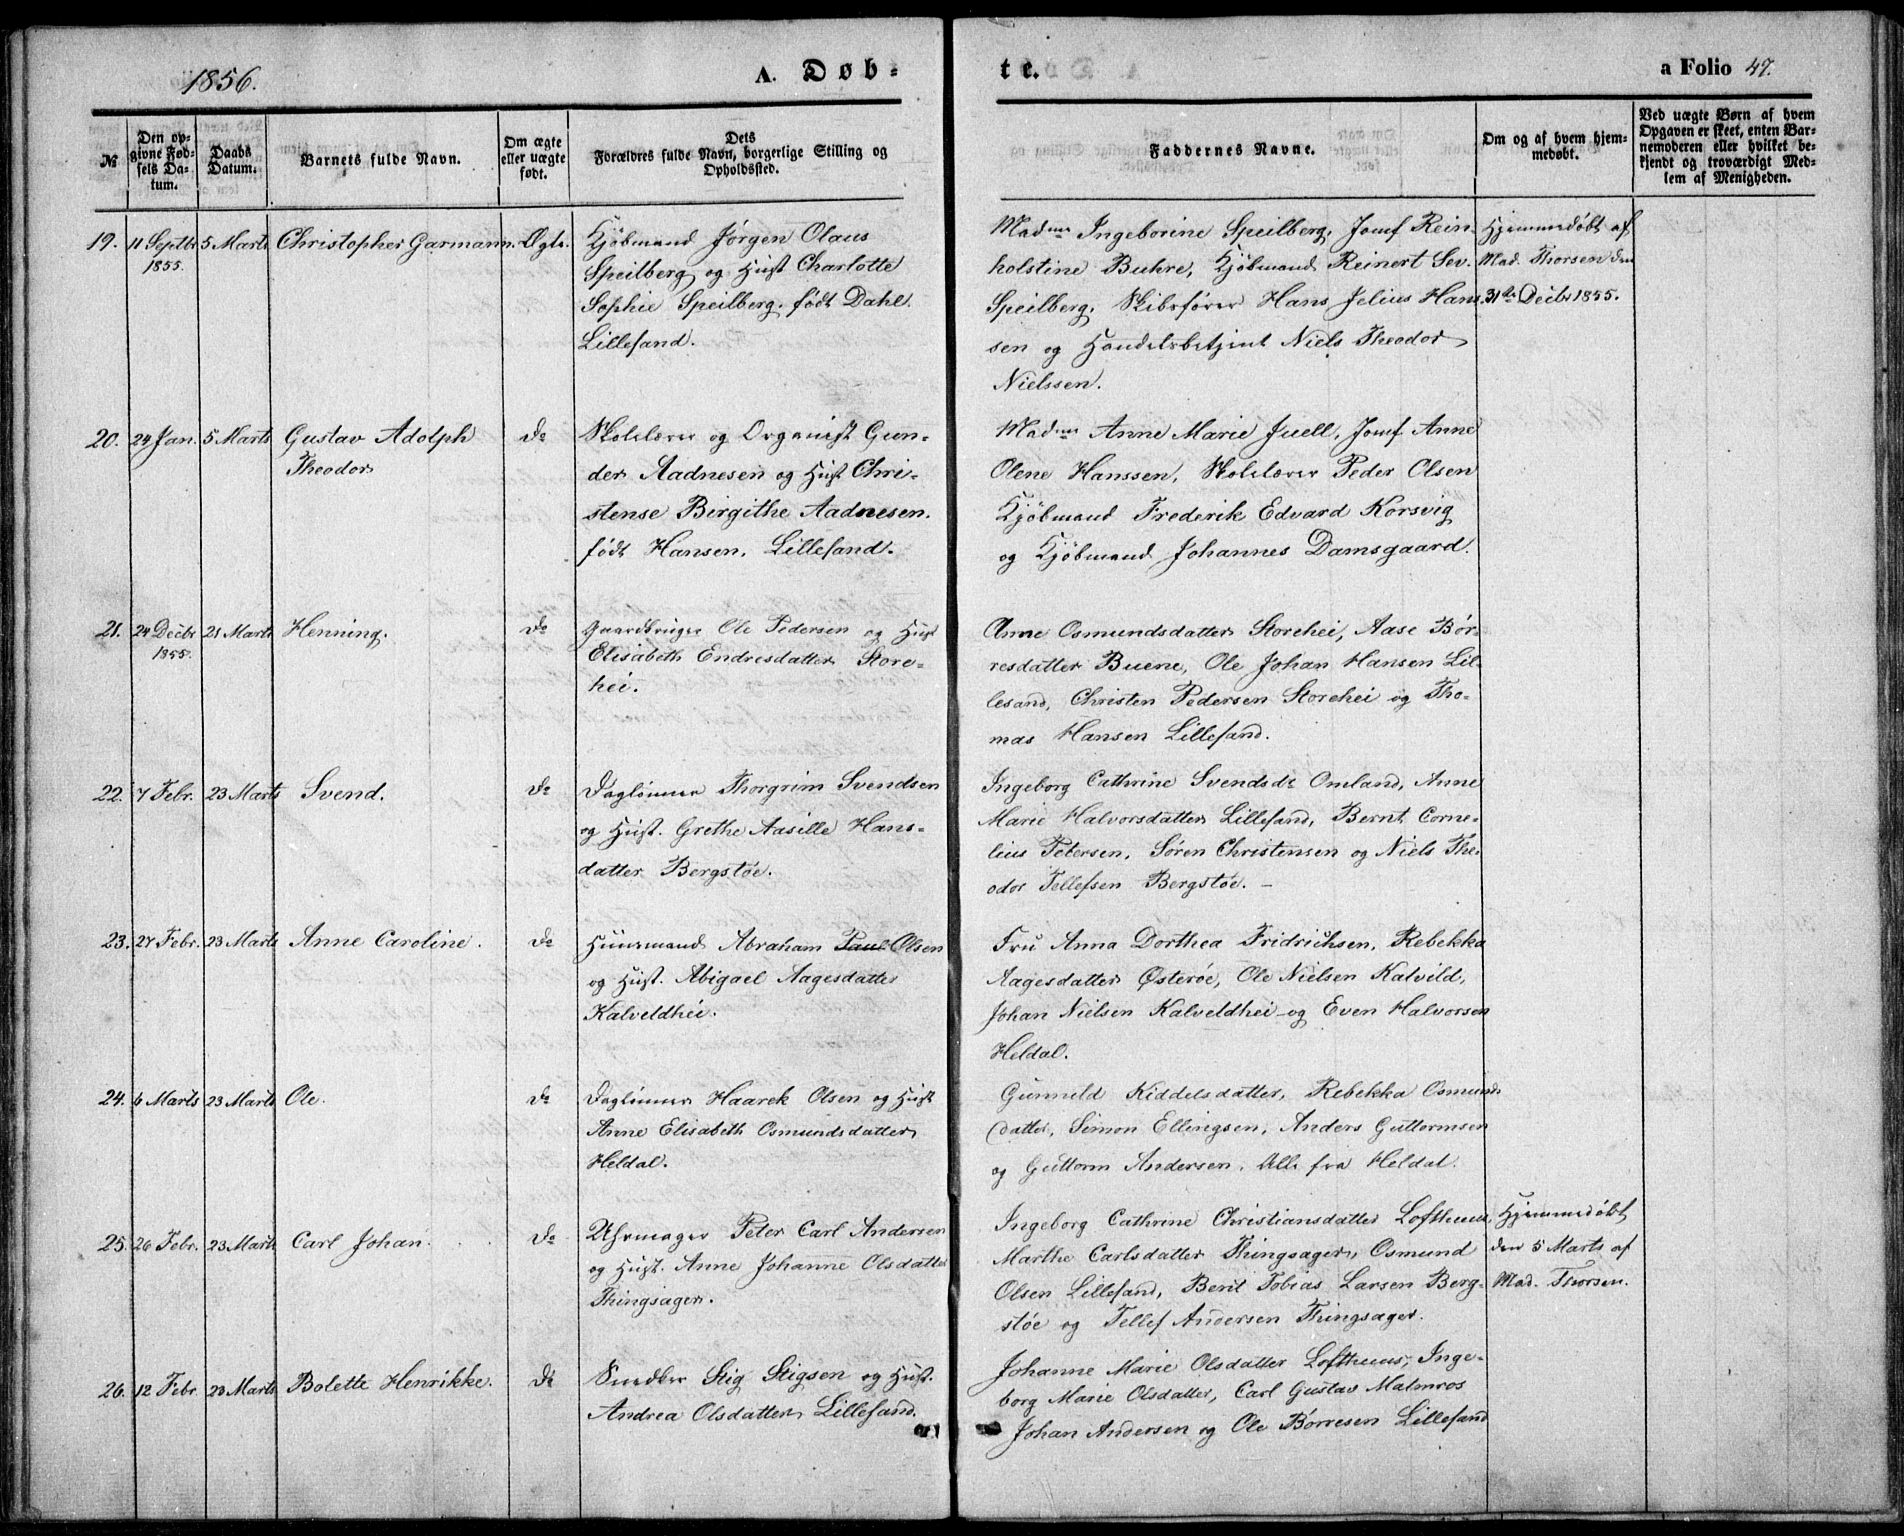 1856.
A. Døb-
te.
a Folio 47.
№
Den op-
givne Fød-
sels Da-
tum.
Daabs
Datum.
Barnets fulde Navn.
Om ægte
eller uægte
født.
Dets
Forældres fulde Navn, borgerlige Stilling og
Opholdssted.
Faddernes Navne.
Om og af hvem hjem-
medøbt.
Ved uægte Børn af hvem
Opgaven er skeet, enten Bar-
nemoderen eller hvilket be-
kjendt og troværdigt Med-
lem af Menigheden.
19.
11 Septbr
1855.
5 Marts
Christopher Garmann.
Ægte.
Kjöbmand Jørgen Olaus
Speilberg og Hust Charlotte
Sophie Speilberg. født Dahl
Lillesand.
Madme Ingeborine Speilberg, Jomf Rein-
holstine Buhre, Kjöbmand Reinert Sev.
Speilberg. Skibsfører Hans Jelius Hans-
sen og Handelsbetjent Niels Theodor
Nielssen.
Hjemmedøbt af
Mad. Thorsen den
31te Decbr 1855.
20.
24 Jan.
5 Marts
Gustav Adolph
Theodor
Do
Skolelærer og Organist Gun-
der Aadnesen og Hust Chri-
stense Birgithe Aadnesen.
født Hansen. Lillesand.
Madme Anne Marie Juell, Jomf. Anne
Olene Hanssen, Skolelærer Peder Olsen
Kjöbmand Frederik Edvard Korsvig
og Kjöbmand Johannes Damsgaard.
21.
24 Decbr
1855.
21 Marts
Henning.
Do
Gaardbruger Ole Pedersen og Hust
Elisabeth Endresdatter Store-
hei.
Anne Osmundsdatter Storehei, Aase Bør-
resdatter Buene, Ole Johan Hansen Lil-
lesand, Christen Pedersen Storehei og Tho-
mas Hansen Lillesand.
22.
7 Febr.
23 Marts
Svend.
Do
Daglönner Thorgrim Svendsen
og Hust. Grethe Aasille Hans-
datter Bergstøe.
Ingeborg Cathrine Svendsdr Omland, Anne
Marie Halvorsdatter Lillesand, Bernt Corne-
lius Petersen, Søren Christensen og Niels The-
odor Tellefsen Bergstøe. –
23.
27 Febr.
23 Marts
Anne Caroline.
Do
Huusmand Abraham Paul Olsen
og Hust. Abigael Aagesdatter
Kalveldhei.
Fru Anna Dorthea Fridrichsen, Rebekka
Aagesdatter Østerøe, Ole Nielsen Kalvild,
Johan Nielsen Kalveldhei og Even Halvorsen
Heldal.
24.
6 Marts
23 Marts
Ole.
Do
Daglönner Haarek Olsen og Hust
Anne Elisabeth Osmundsdatter
Heldal.
Gunneld Kiddelsdatter, Rebekka Osmunds
datter, Simon Ellingsen, Anders Guttormsen
og Guttorm Andersen. Alle fra Heldal.
25.
26 Febr.
23 Marts
Carl Johan.
Do
Uhrmager Peter Carl Andersen
og Hust. Anne Johanne Olsdatter
Thingsager.
Ingeborg Cathrine Christiansdatter Lofthuus,
Marthe Carlsdatter Thingsager, Osmund
Olsen Lillesand, Berit Tobias Larsen Berg-
støe og Tellef Andersen Thingsager.
Hjemmedøbt
den 5 Marts af
Mad. Thorsen.
26.
12 Febr.
23 Marts
Bolette Henrikke.
Do
Snedker Stig Stigsen og Hust.
Andrea Olsdatter Lillesand.
Johanne Marie Olsdatter Lofthuus, Inge-
borg Marie Olsdatter, Carl Gustav Malmros
Johan Andersen og Ole Børresen Lillesand